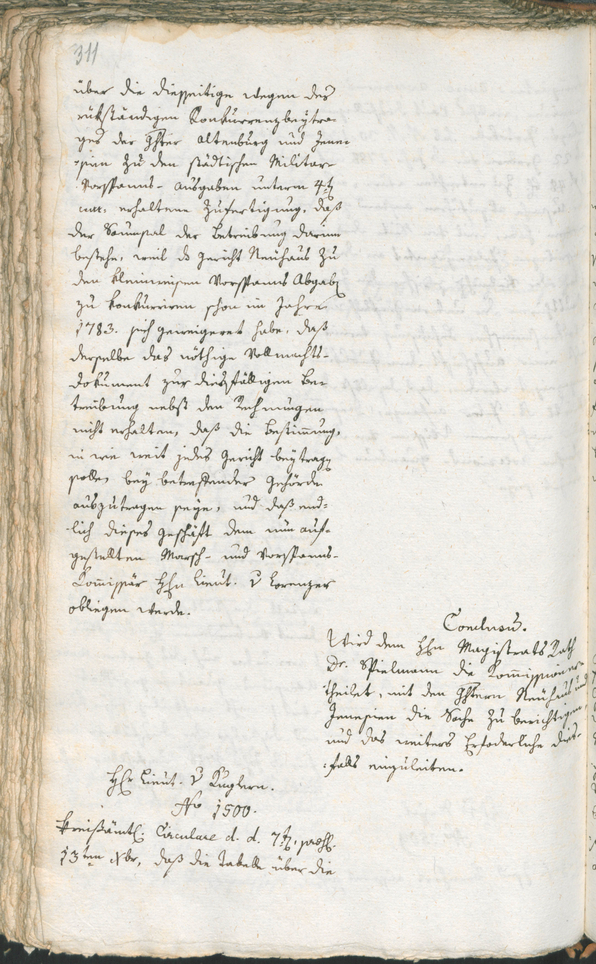 311
über die diesseitige wegen des
rükständigen Konkurrenzbeytra-
ges der Ghter Altenburg und Jene-
sien zu den städtischen Militar-
Vorspanns- Ausgaben unterm 4t
curr. erhaltene Zufertigung, daß
der Saumsal der Betreibung darinn
bestehe, weil ds Gericht Neuhaus zu
den kleinweisen Vorspanns Abgaben
zu konkurriren schon im Jahre
1783. sich geweigeret habe, daß
derselbe das nöthige Vollmachts-
dokument zur diesfälligen Bei-
treibung nebst den Rechnungen
nicht erhalten, daß die Bestimmung,
in wie weit jedes Gericht beytragen
solle, bey betreffender Gehörde
auszutragen seye, und daß end-
lich dieses Geschäft dem nun auf-
gestellten Marsch- und Vorspanns-
Kommissär Hhn Lieut. v Lorenzer
obliegen werde.
Conclusum.
Wird dem Hhn Magistrats Rath
Dr. Spielmann die Kommission er-
theilet, mit den Ghtern Neuhaus und
Jenesien die Sache zu berichtigen,
und das weiters Erforderliche dies-
falls einzuleiten.
Hhr Lieut. v Kuglern.
No 1500.
Kreisämtl. Circulare d. d. 7t, praes.
13ten Xbr, daß die Tabell über die